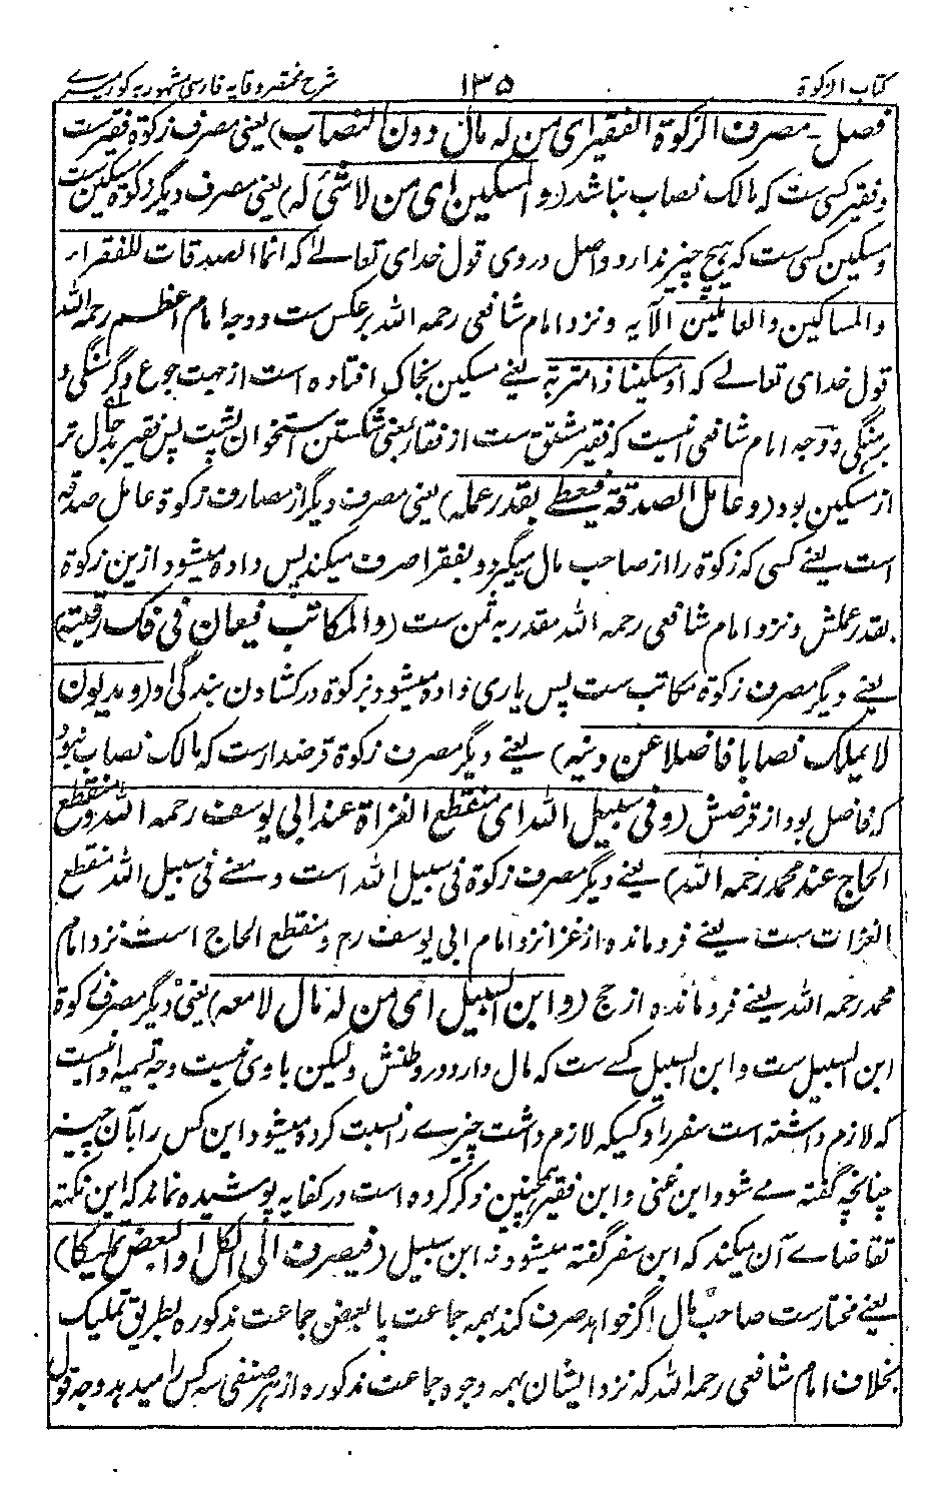 کتاب الزکوة ۱۳۵ شرح مختصر وقایه فارسی مشهور به کورمیرے
فصل ـ مصرف الزکوة الفقیر ای من له مال دون النصاب) یعنی مصرف زکوة فقیرست
و فقیر کسی ست که مالک نصاب نباشد (و المسکین ای من لاشئ له) یعنی مصرف دیگر زکوة مسکین ست
و مسکین کسی ست که هیچ چیز ندارد و اصل دروی قول خدای تعالے که انما الصدقات للفقراء
والمساکین والعاملین الآیه و نزد امام شافعی رحمه الله برعکس ست و وجه امام اعظم رحمه الله
قول خدای تعالے که او مسکینا ذا متربة یعنے مسکین بخاک افتاده است از جهت جوع و گرسنگی و
برهنگی و وجه امام شافعی انیست که فقیر مشتق ست از فقار یعنی شکستن استخوان پشت پس فقیر بد حال تر
از مسکین بود (و عامل الصدقة فیعطے بقدر عمله) یعنی مصرف دیگر از مصارف زکوة عامل صدقه
است یعنے کسی که زکوة را از صاحب مال میگیرد و بفقرا صرف میکند پس داده میشود ازین زکوة
بقدر عملش و نزد امام شافعی رحمه الله مقدر به ثمن ست (والمکاتب فیعان فی فک رقبته)
یعنے دیگر مصرف زکوة مکاتب ست پس یاری داده میشود بزکوة در کشادن بندگی او (و مدیون
لا یملک نصابا فاضلا عن دینه) یعنے دیگر مصرف زکوة قرضدار است که مالک نصاب نبود
که فاضل بود از قرضش (و فی سبیل الله ای منقطع الغزاة عند ابی یوسف رحمه الله و منقطع
الحاج عند محمد رحمه الله) یعنے دیگر مصرف زکوة فی سبیل الله است و معنے فی سبیل الله منقطع
الغزات ست یعنے فرو مانده از غزا نزد امام ابی یوسف رح و منقطع الحاج است نزد امام
محمد رحمه الله یعنے فرو مانده از حج (و ابن السبیل ای من له مال لا معه) یعنی دیگر مصرف زکوة
ابن السبیل ست و ابن السبیل کسے ست که مال دارد در وطنش ولیکن باوی نیست و وجه تسمیه او انیست
که لازم داشته است سفر را و کسیکه لازم داشت چیزے را نسبت کرده میشود این کس را بآن چیز
چنانچه گفته مے شود ابن غنی و ابن فقیر همچنین ذکر کرده است در کفایه پوشیده نماند که این نکته
تقاضاے آن میکند که ابن سفر گفته میشود نه ابن سبیل (فیصرف الی الکل او البعض تملیکا)
یعنے مختارست صاحب مال اگر خواهد صرف کند بهمه جماعت یا بعض جماعت مذکوره بطریق تملیک
بخلاف امام شافعی رحمه الله که نزد ایشان بهمه وجوه جماعت مذکوره از هر صنفی سه کس را میدهد و وجه قول